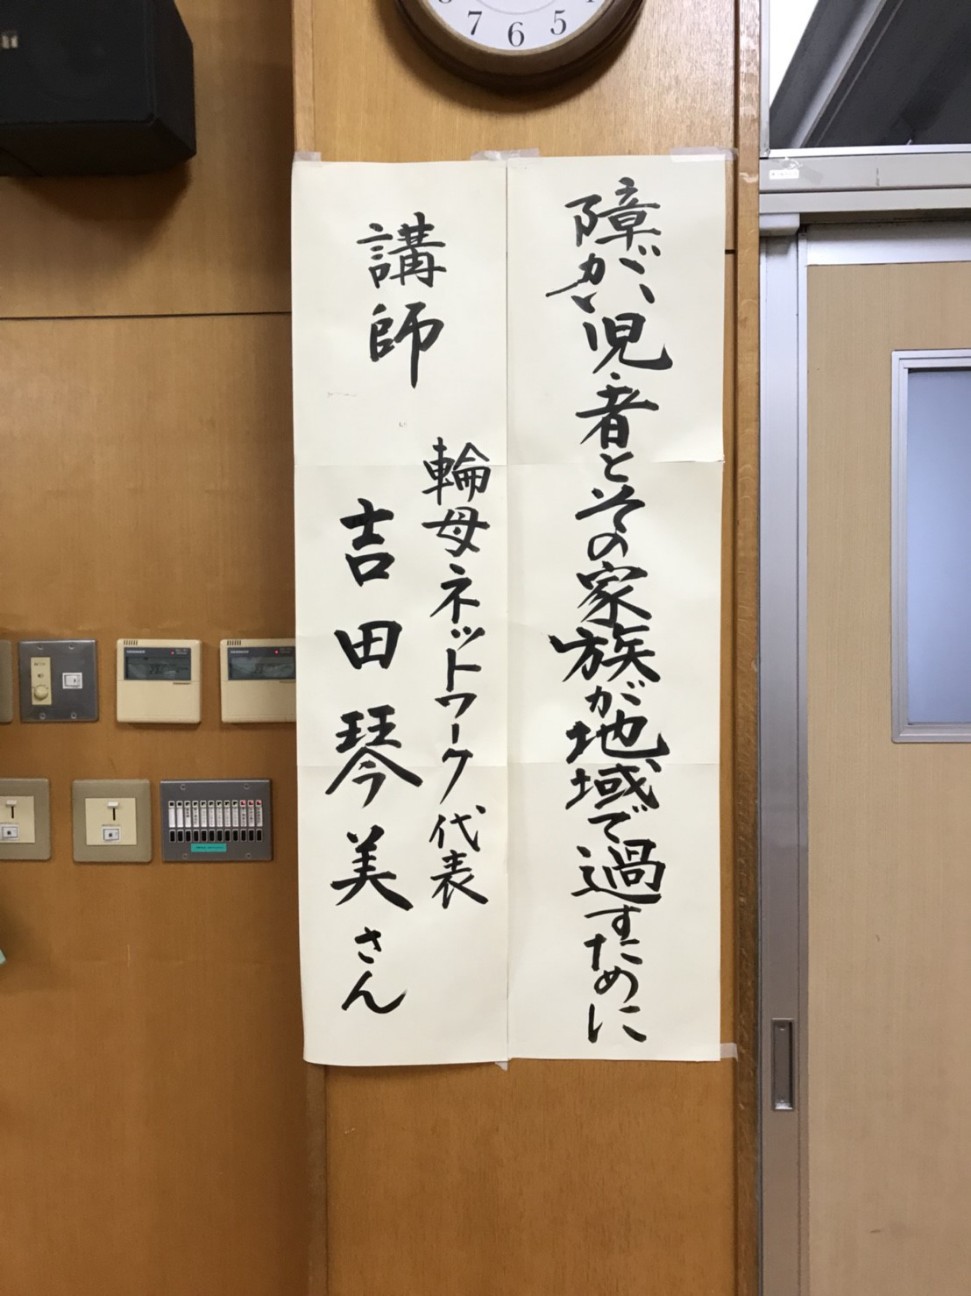 障がい児・者とその家族が地域で過すために
講師
輪母ネットワーク 代表
吉田琴美さん
7 6 5